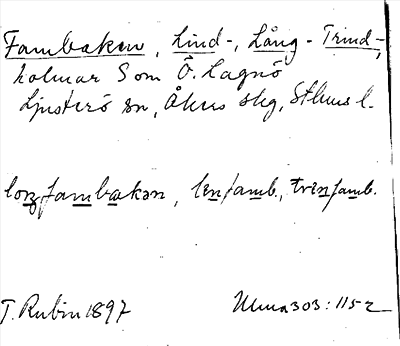 Fambaken, Lind-, Lång- Trind-,
holmar S om Ö. Lagnö
Ljusterö sn, Åkers skg, Sthms l.
loŋfambakən, lenfamb., trenfamb.
T. Rubin 1897 Uuua 303:1152